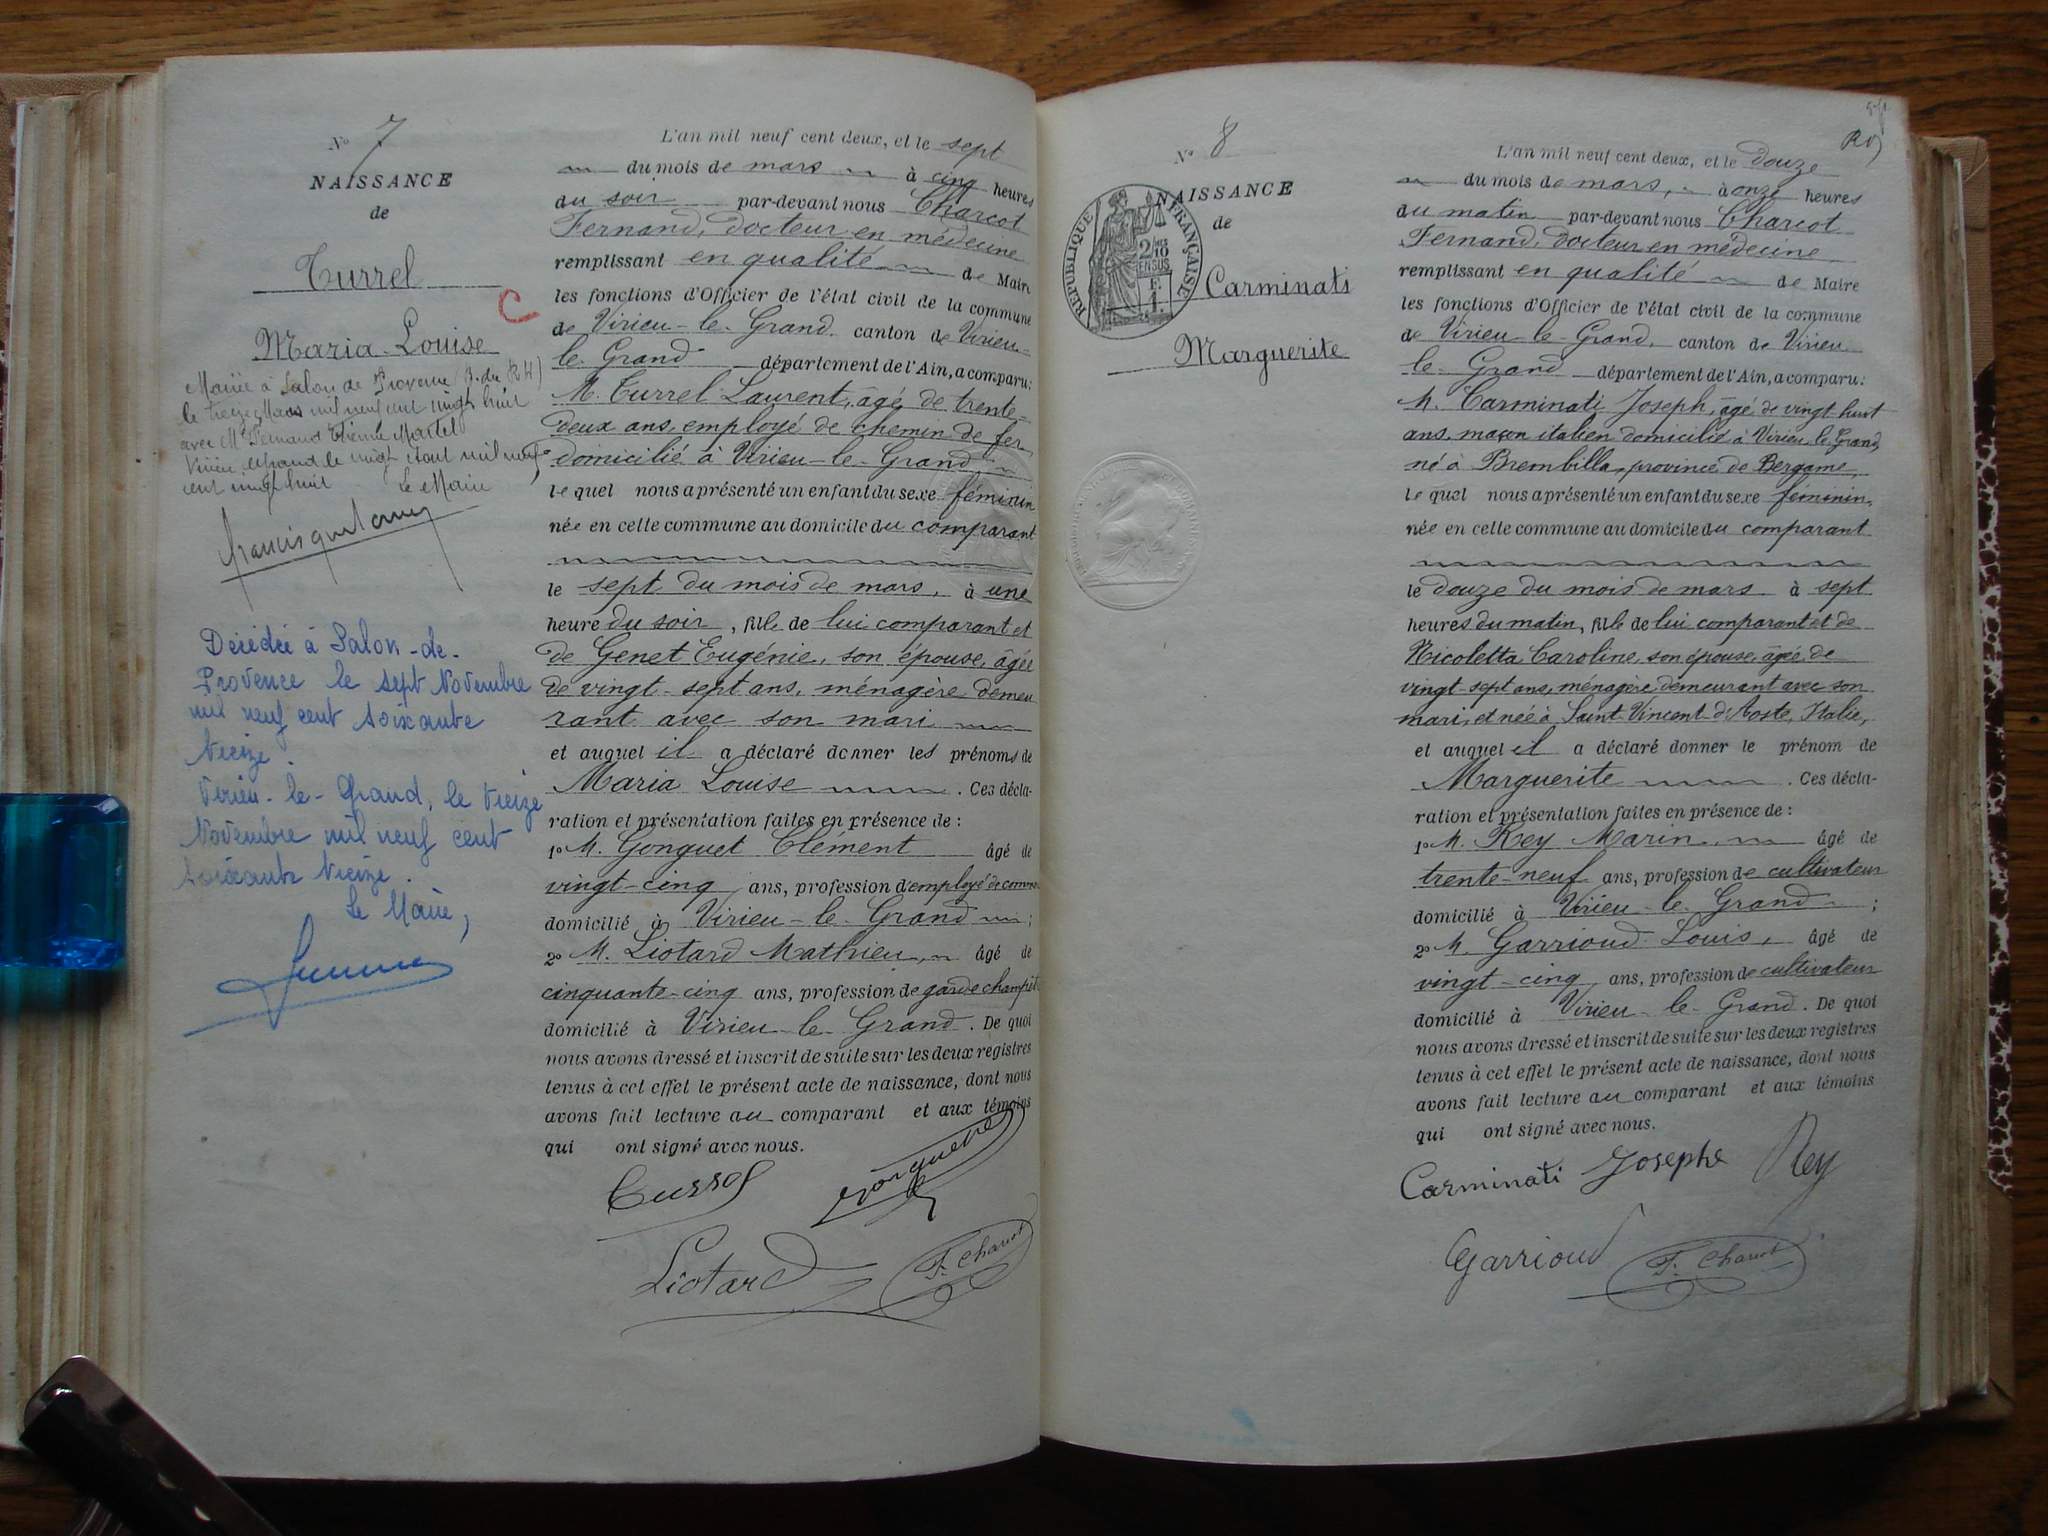 N° 7
NAISSANCE
de
Turrel
Maria Louise
Mariée à Salon de Provence (B. du R.H)
le treize Mars mil neuf cent vingt huit
avec Mr Fernand Etienne Martel
Virieu le grand le vingt Aout mil neuf
cent vingt huit le Maire
Décédée à Salon-de-
Provence le sept Novembre
mil neuf cent soixante
treize.
Virieu-le-Grand, le treize
Novembre mil neuf cent
soixante treize.
Le Maire,
C
L'an mil neuf cent deux, et le sept
du mois de mars à cinq heures
du soir par-devant nous Charcot
Fernand, docteur en médecine
remplissant en qualité de Maire
les fonctions d'Officier de l'état civil de la commune
de Virieu-le-Grand canton de Virieu-
le Grand département de l'Ain, a comparu:
M. Turrel Laurent, âgé de trente-
deux ans, employé de chemin de fer,
domicilié à Virieu-le-Grand,
lequel nous a présenté un enfant du sexe féminin
née en cette commune au domicile du comparant
le sept du mois de mars, à une
heure du soir, fille de lui comparant et
de Genet Eugénie, son épouse, âgée
de vingt-sept ans, ménagère demeu
rant avec son mari
et auquel il a déclaré donner les prénoms de
Maria Louise. Ces décla-
ration et présentation faites en présence de :
1° M. Gonguet Clément âgé de
vingt-cinq ans, profession d'employé de comm
domicilié à Virieu-le-Grand ;
2° M. Liotard Mathieu, âgé de
cinquante-cinq ans, profession de garde champêt
domicilié à Virieu-le-Grand. De quoi
nous avons dressé et inscrit de suite sur les deux registres
tenus à cet effet le présent acte de naissance, dont nous
avons fait lecture au comparant et aux témoins
qui ont signé avec nous.
Turrel
Liotard F. Charcot
N° 8
NAISSANCE
de
RÉPUBLIQUE FRANÇAISE
2/10 EN SUS
Carminati
Marguerite
L'an mil neuf cent deux, et le douze
du mois de mars, à onze heures
du matin par-devant nous Charcot
Fernand, docteur en médecine
remplissant en qualité de Maire
les fonctions d'Officier de l'état civil de la commune
de Virieu-le-Grand, canton de Virieu
le Grand département de l'Ain, a comparu:
M. Carminati Joseph, âgé de vingt huit
ans, maçon italien domicilié à Virieu le Grand,
né à Brembilla, province de Bergame,
lequel nous a présenté un enfant du sexe féminin,
née en cette commune au domicile du comparant
le douze du mois de mars à sept
heures du matin, fille de lui comparant et de
Nicoletta Caroline, son épouse, âgée de
vingt-sept ans, ménagère demeurant avec son
mari, et née à Saint-Vincent d'Aoste, Italie,
et auquel il a déclaré donner le prénom de
Marguerite. Ces décla-
ration et présentation faites en présence de :
1° M. Rey Marin, âgé de
trente-neuf ans, profession de cultivateur
domicilié à Virieu-le-Grand ;
2° M. Garrioud Louis, âgé de
vingt-cinq ans, profession de cultivateur
domicilié à Virieu-le-Grand. De quoi
nous avons dressé et inscrit de suite sur les deux registres
tenus à cet effet le présent acte de naissance, dont nous
avons fait lecture au comparant et aux témoins
qui ont signé avec nous.
Carminati Josephe Rey
Garrioud F. Charcot